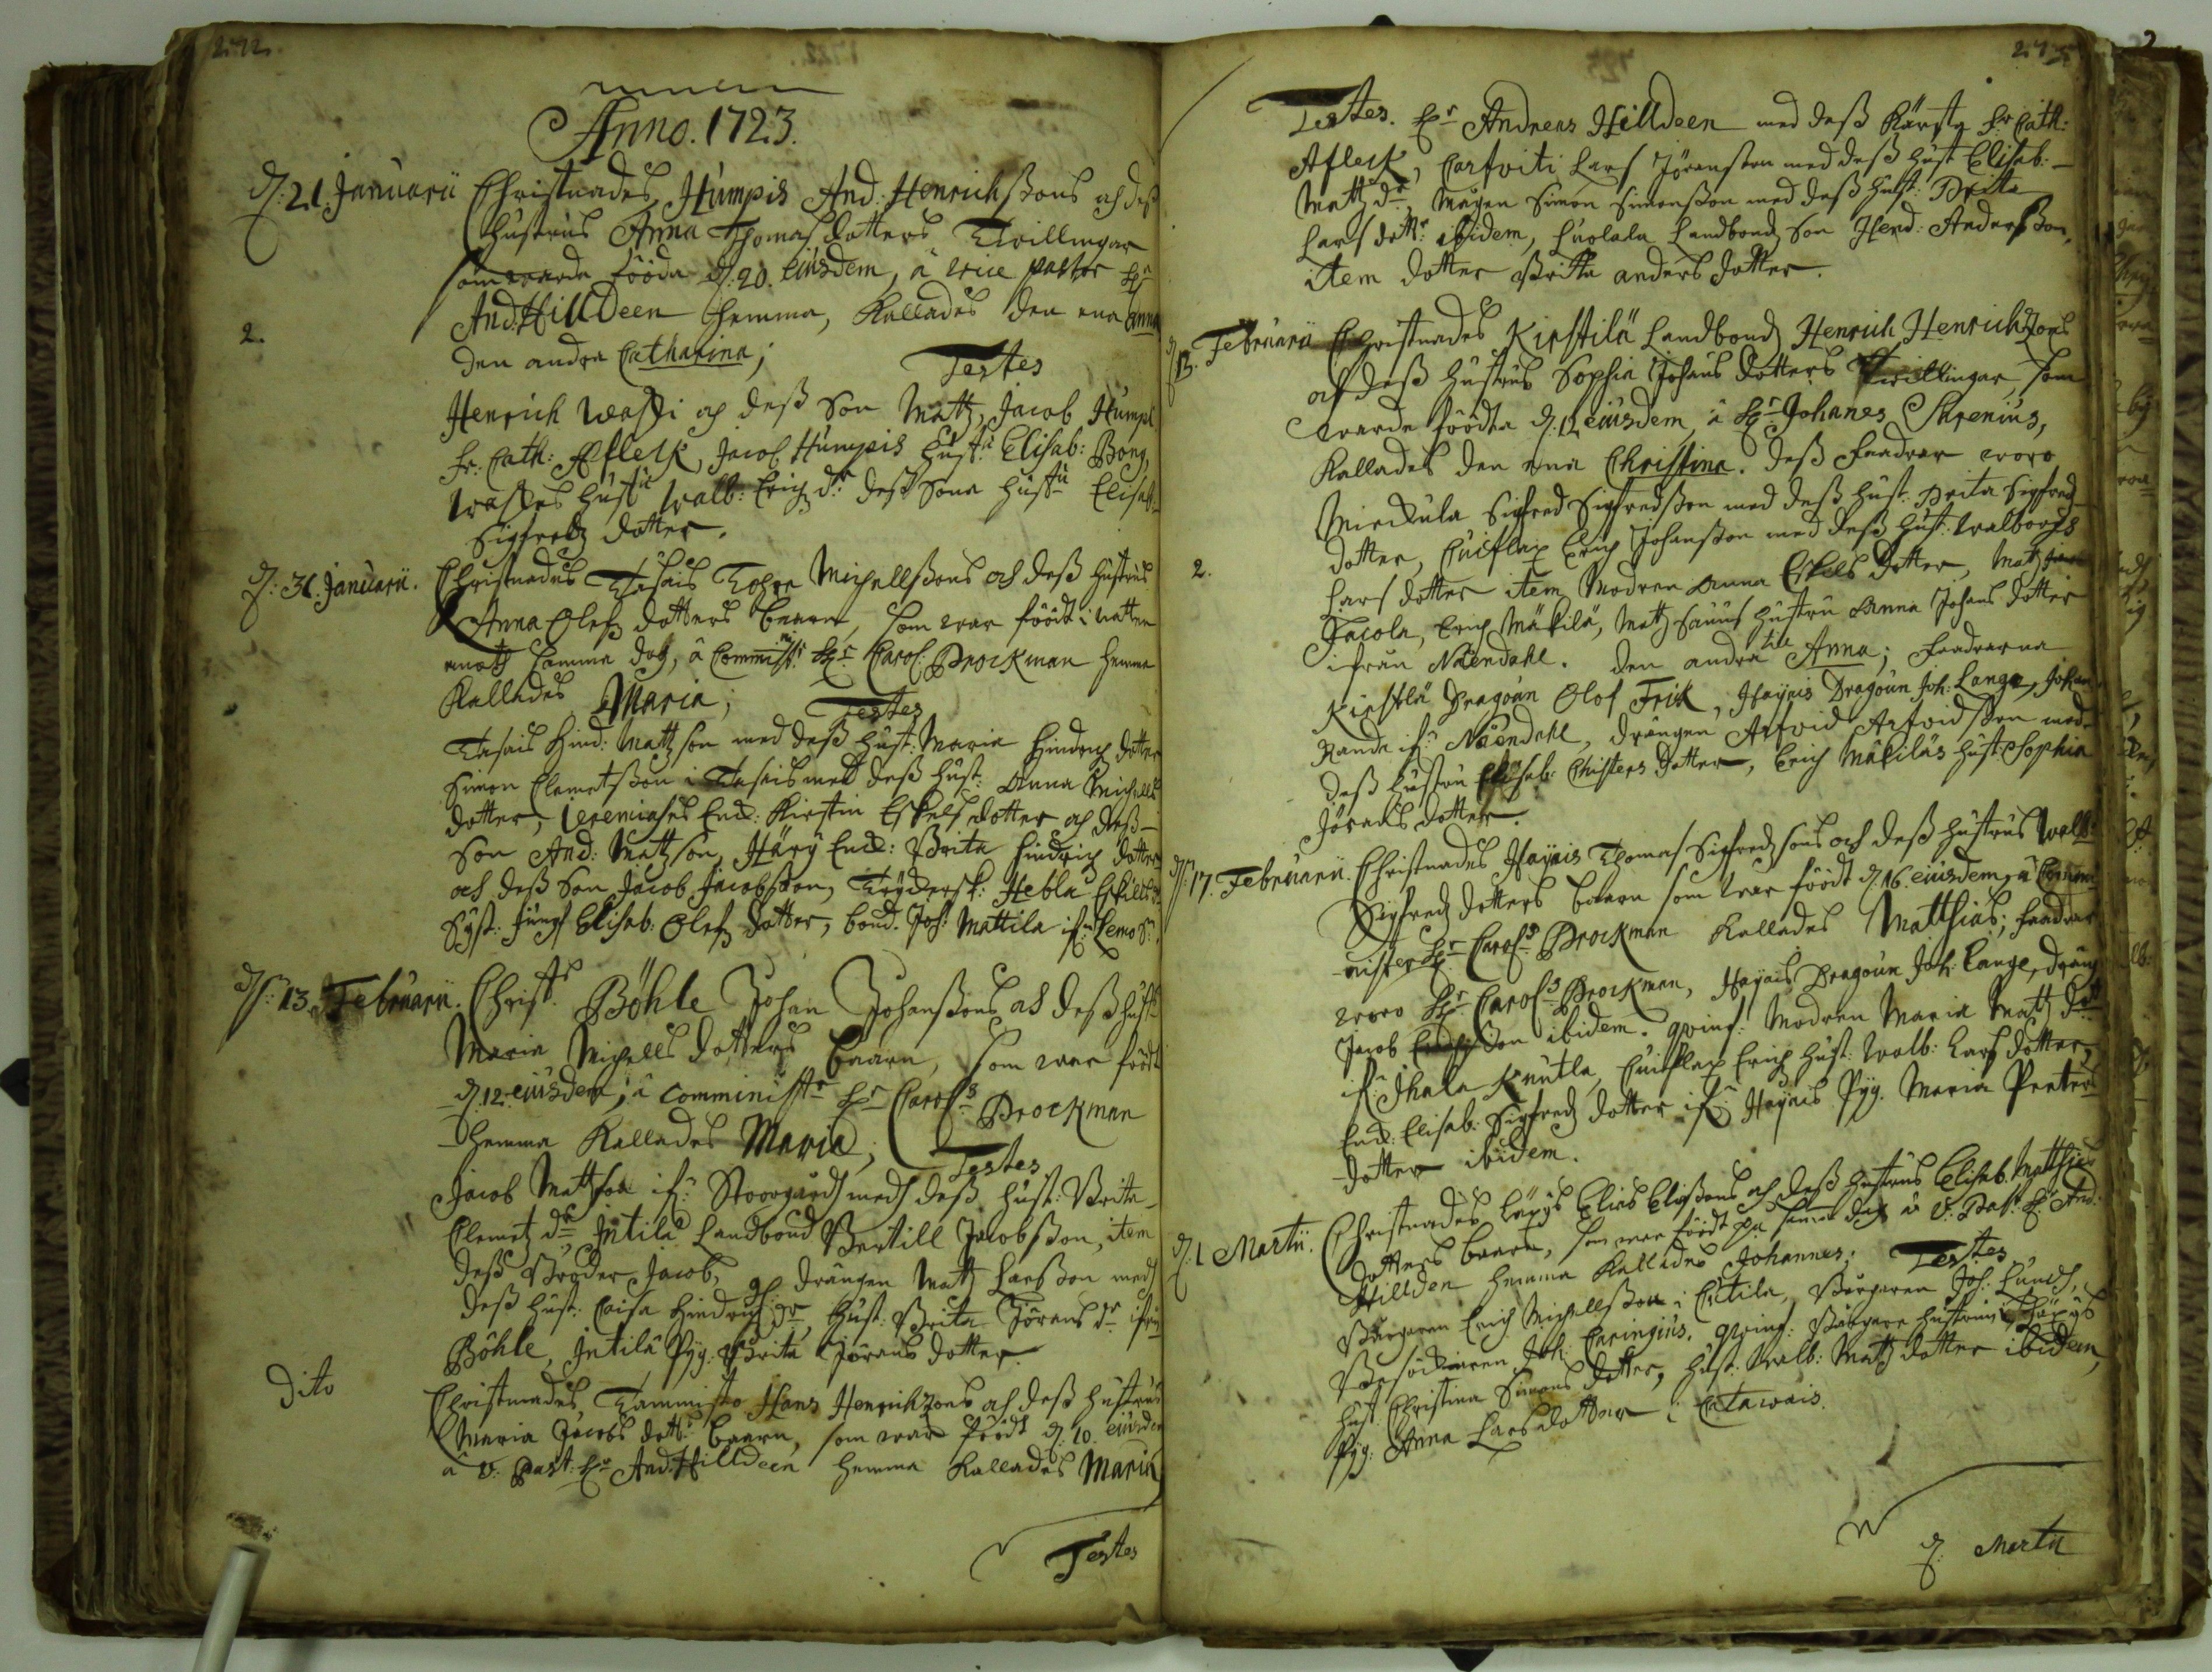 272.
Anno. 1723.
d: 21. Januarii Christnades Humpis And: Henrichßons och deß
hustrus Anna Thomas dotters Twillingar
som warda födda d: 20. eiusdem, â vice pastor Hr
And: Hilldeen hemma, Kallades den ena Anna
2.
den andra Catharina;
Testes
Henrich Waßi och deß Son Matz, Jacob Humpi
fr: Cath: Afleck, Jacob Humpis hustu Elisab: Bong,
Waßes hustu Walb: Erichs dr deß Sons hustu Elisab:
Sigfredz dotter.
d: 31. Januarii. Christnades Tasais Michellßons och deß hustrus
Anna Olefz dotters baarn, som war föödt i natten
emoth samma dag, â Commistr Hr Carol: Brockman hemma
Kallades Maria;
Testes
Tasais Hind: Matzson med deß hust: Maria Hindrich dotter
Simon Clemetßon i Tasais med deß hust: Anna Michells
dotter, Jeremiases Enck: Kirstin Eskels dotter och deß
Son And: Matzson, Häry Enck: Brita Hindrich dotter
och deß Son Jacob Jacobßson, Hebla Eskils dr
Syst: Jungf Elisab: Olefz dotter, bond. Joh: Mattila ifn Lemo Sn.
d: 13. Februarii. Christs Böhle Johan Johanßons och deß hust:
Maria Michells dotters baarn, som war födt
d. 12. eiusdem, â comministr Hr Carols Brockman
hemma Kallades Maria;
Testes
Jacob Matzson ifn Stoorgårdh medh deß hust: Brita
Clemetz dr, Intila Landbond Bertill Jacobsßon, item
deß Broder Jacob, drängen Matz Larßon medh
deß hust: Caisa Hindrichz dr, hust: Brita Jörans dr ifrån
Böhle, Intila Pyg: Brita Jörans dotter.
Dito
Christnades Tammisto Hans Henrichßons och deß hustrus
Maria Jacobs dottrs baarn, som war födt d. 10. eiusdem
â v: Past: Hr And: Hilldeen hemma Kallades Maria
Testes
273
Testes. Hr Andreas Hilldeen med deß Kärsta fr Cath:
Afleck, Lars Jöransson med deß hust Elisab:
Matz dr, Mågen Simon Simonßon med deß hust: Brita
Lars dottr ibidem, Landbondz Son Hend: Andersßon,
item dotter Britta anders dotter.
d: 13. Februarii Christnades Kirstilä Landbondz Henrich Henrichßons
och deß hustrus Sophia Johans dotters Twillingar, som
warde föödta d. 12 eiusdem, â Hr Johanes Threnius,
Kallades den ena Christina. deß faadrar woro
Mierkula Sigfred Sigfredßon med deß hust: Brita Sigfred
dotter, Erich Johanßon med deß hust: Walborgs
2.
Lars dotter item Modren Anna Eskels dotter, Matz
Jacola, Erich Mäkilä, Matz hustru Anna Johans dotter
ifrån Nåendahl. den andra till Anna; Faadrarna
Kirstilä Dragoun Olof Frisk, Hayais Dragoun Joh: Lange, Johan
Rande ifn Nåendahl, drängen Arfvid Arfvidßon med
deß hustru Elisab: Christers dotter, Erich Mäkiläs hust: Sophia
Jörans dotter.
d: 17. Februarii. Christnades Hayais Thomas Sigfredzsons och deß hustrus Walb:
Sigfredz dotters baarn som war föödt d. 16. eiusdem, â Commi
nister Hr Carols Brockman Kallades Matthias; faadrar
woro Hr Carols Brockman, Hayais Dragoun Joh: Lange, dräng
Jacob son ibidem. qvinf: Modren Maria Matz dott
ifn Ihala Knutla, Erich hust: Walb: Lars dotter,
Enck: Elisab: Sigfredz dotter ifn Hayais Pyg: Maria Peeters
dotter ibidem.
d: 1 Martii. Christnades Läxys Elias Elißons och deß hustrus Elisab. Matthie
dotters baarn, som war föödt på samma dag â v: Past: Hr And:
Hillden hemma Kallades Johannes;
Testes
Borgaren Erich Michellßon i Cutila, Borgaren Joh: Lundh,
Joh: Caringius. qvinf: Borgare hustrun i Läxys
hust Christina Simons dotter, hust: Walb: Matz dotter ibidem,
Pyg: Anna Lars dotter i Catawais.
d: Martii